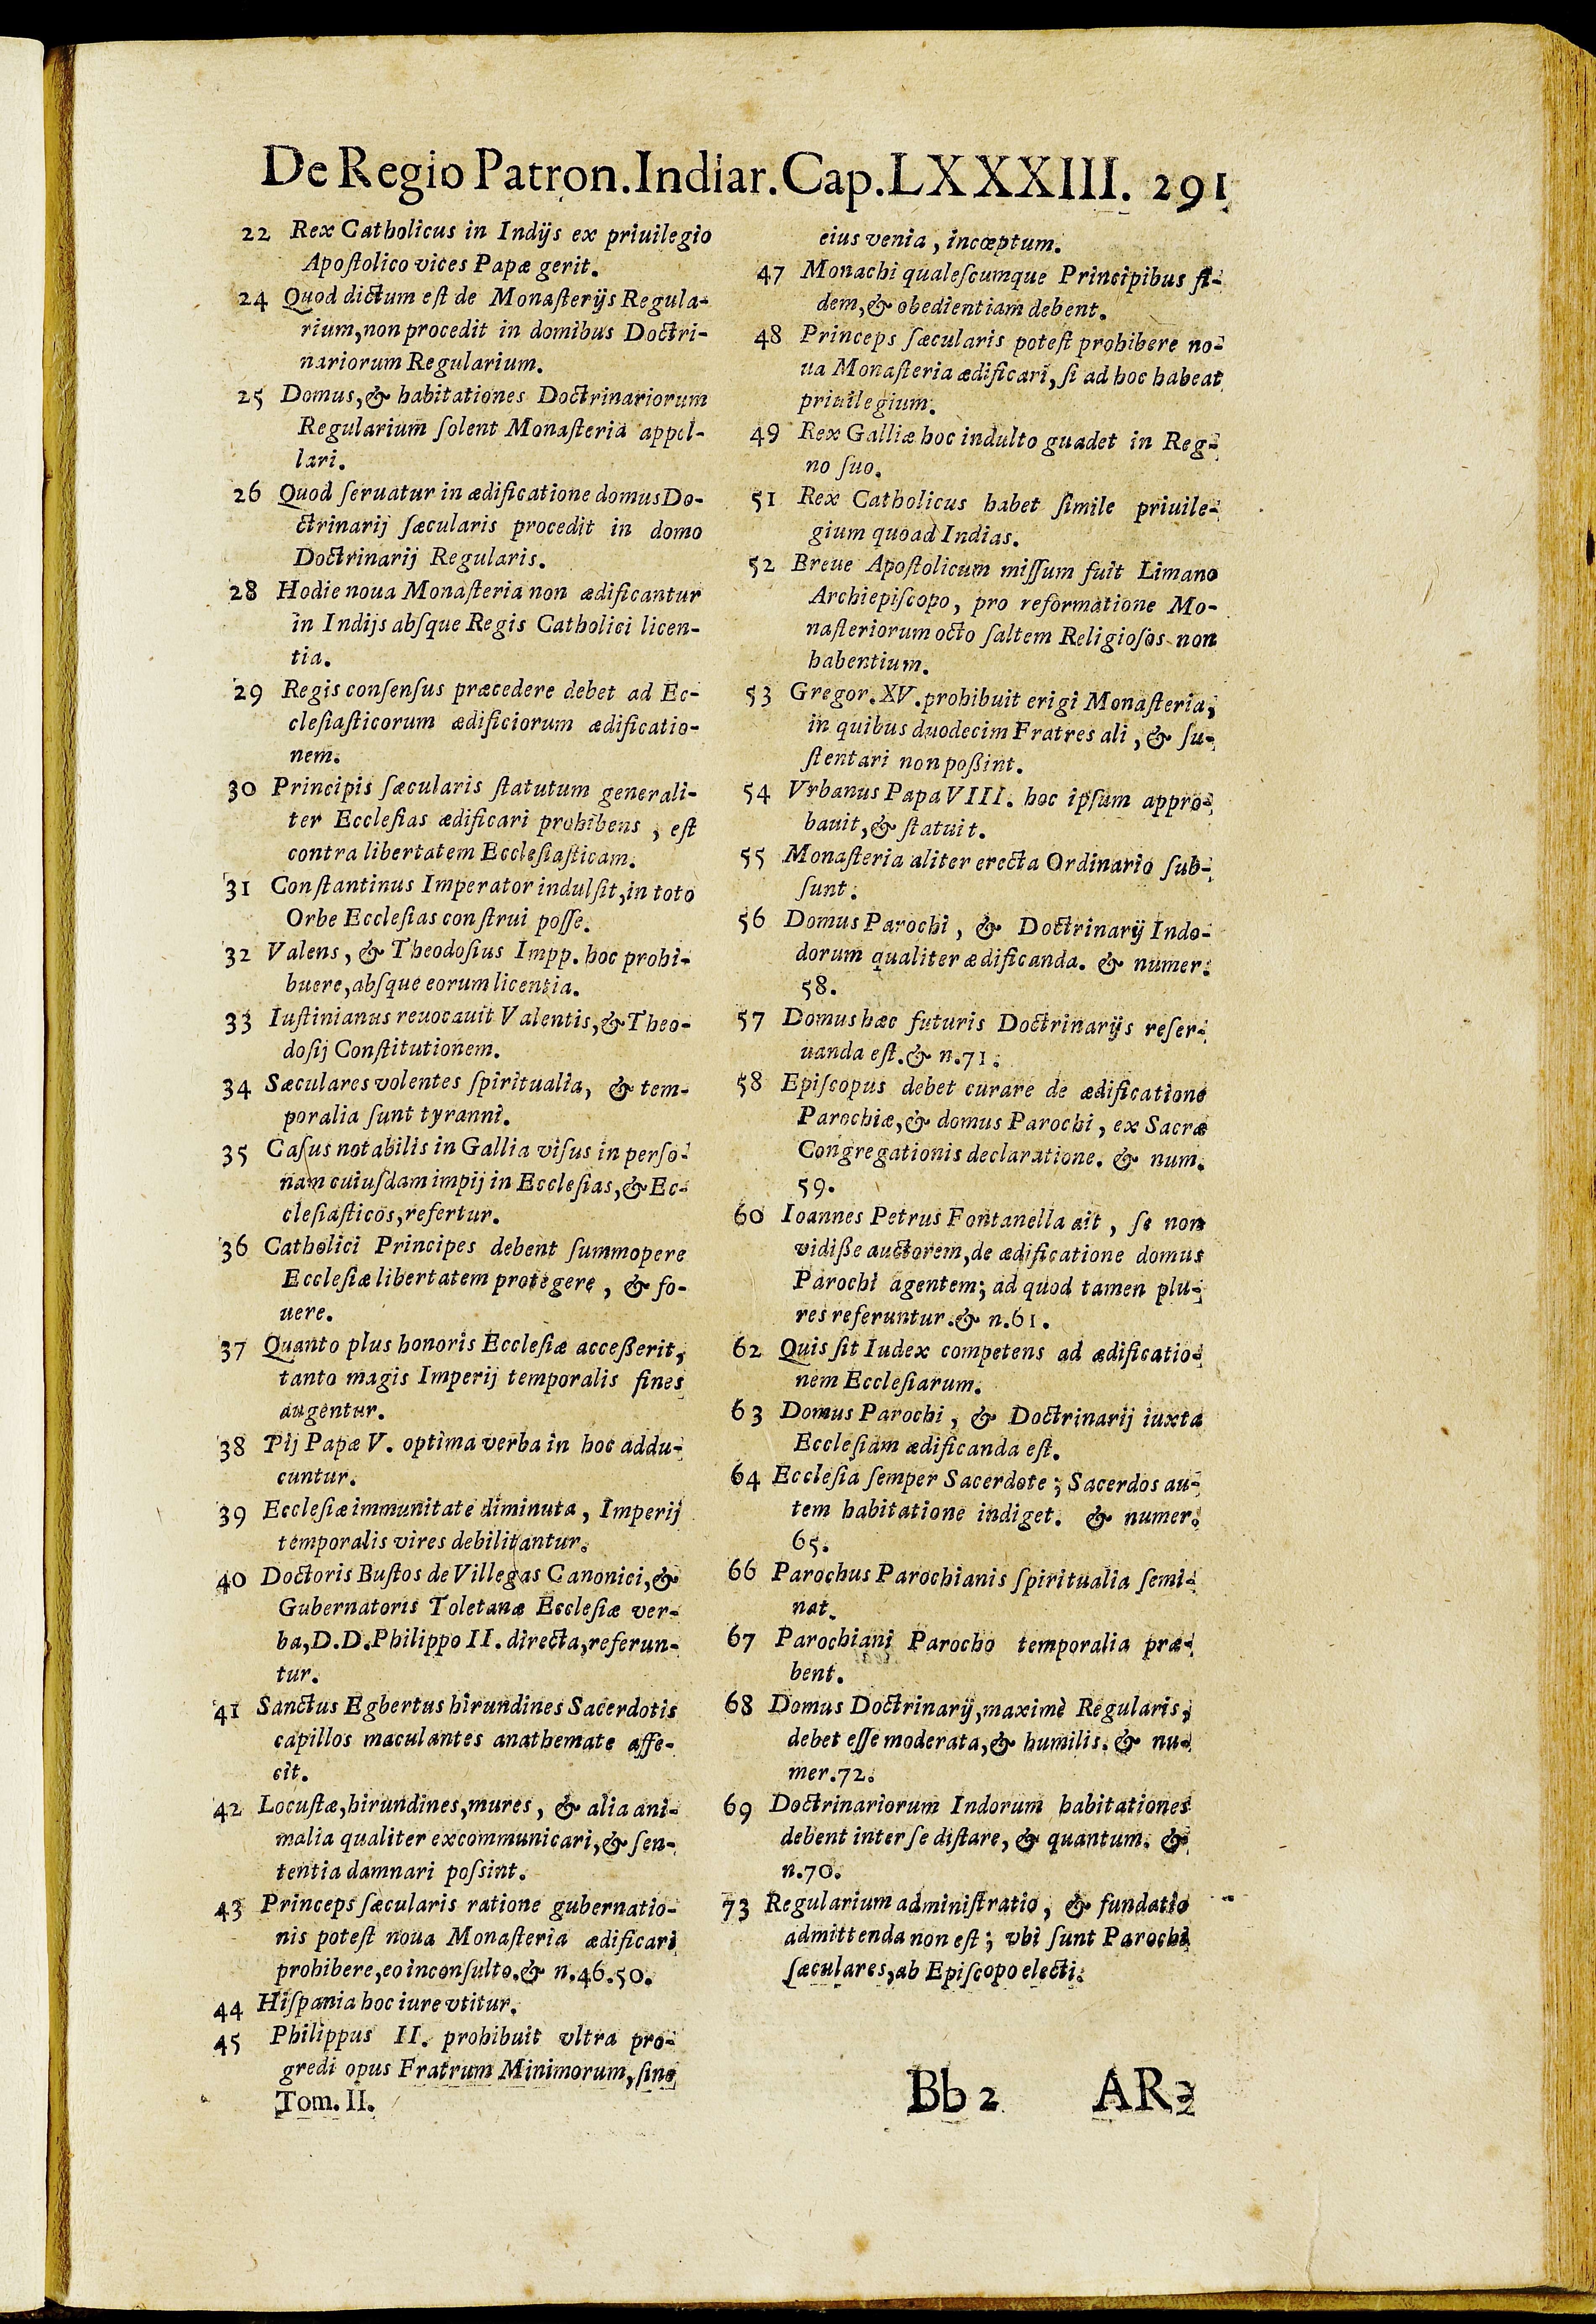 De Regio Patron. Indiar. Cap. LXXXIII. 291
22 Rex Catholicus in Indijs ex priuilegio
Apoſtolico vices Papæ gerit.
24 Quod dictum eſt de Monaſterijs Regula-
rium, non procedit in domibus Doctri-
nariorum Regularium.
25 Domus, & habitationes Doctrinariorum
Regularium ſolent Monaſteria appel-
lari.
26 Quod ſeruatur in ædificatione domus Do-
ctrinarij ſæcularis procedit in domo
Doctrinarij Regularis.
28 Hodie noua Monaſteria non ædificantur
in Indijs abſque Regis Catholici licen-
tia.
29 Regis conſenſus præcedere debet ad Ec-
cleſiaſticorum ædificiorum ædificatio-
nem.
30 Principis ſæcularis ſtatutum generali-
ter Eccleſias ædificari prohibens, eſt
contra libertatem Eccleſiaſticam.
31 Conſtantinus Imperator indulſit, in toto
Orbe Eccleſias conſtrui poſſe.
32 Valens, & Theodoſius Impp. hoc prohi-
buere, abſque eorum licentia.
33 Iuſtinianus reuocauit Valentis, & Theo-
doſij Conſtitutionem.
34 Sæculares volentes ſpiritualia, & tem-
poralia ſunt tyranni.
35 Caſus notabilis in Gallia viſus in perſo-
nam cuiuſdam impij in Eccleſias, & Ec-
cleſiaſticos, refertur.
36 Catholici Principes debent ſummopere
Eccleſiæ libertatem protegere, & fo-
uere.
37 Quanto plus honoris Eccleſiæ acceßerit,
tanto magis Imperij temporalis fines
augentur.
38 Pij Papæ V. optima verba in hoc addu-
cuntur.
39 Eccleſiæ immunitate diminuta, Imperij
temporalis vires debilitantur.
40 Doctoris Buſtos de Villegas Canonici, &
Gubernatoris Toletanæ Eccleſiæ ver-
ba, D.D. Philippo II. directa, referun-
tur.
41 Sanctus Egbertus hirundines Sacerdotis
capillos maculantes anathemate affe-
cit.
42 Locuſtæ, hirundines, mures, & alia ani-
malia qualiter excommunicari, & ſen-
tentia damnari poſsint.
43 Princeps ſæcularis ratione gubernatio-
nis poteſt noua Monaſteria ædificari
prohibere, eo inconſulto. & n.46.50.
44 Hiſpania hoc iure vtitur.
45 Philippus II. prohibuit vltra pro-
gredi opus Fratrum Minimorum, ſine
Tom. II.
eius venia, incœptum.
47 Monachi qualeſcumque Principibus fi-
dem, & obedientiam debent.
48 Princeps ſæcularis poteſt prohibere no-
ua Monaſteria ædificari, ſi ad hoc habeat
priuilegium.
49 Rex Galliæ hoc indulto guadet in Reg-
no ſuo.
51 Rex Catholicus habet ſimile priuile-
gium quoad Indias.
52 Breue Apoſtolicum miſſum fuit Limano
Archiepiſcopo, pro reformatione Mo-
naſteriorum octo ſaltem Religioſos non
habentium.
53 Gregor. XV. prohibuit erigi Monaſteria,
in quibus duodecim Fratres ali, & ſu-
ſtentari non poßint.
54 Vrbanus Papa VIII. hoc ipſum appro-
bauit, & ſtatuit.
55 Monaſteria aliter erecta Ordinario ſub-
ſunt.
56 Domus Parochi, & Doctrinarij Indo-
dorum qualiter ædificanda. & numer.
58.
57 Domus hæc futuris Doctrinarijs reſer-
uanda eſt. & n.71.
58 Epiſcopus debet curare de ædificatione
Parochiæ, & domus Parochi, ex Sacræ
Congregationis declaratione. & num.
59.
60 Ioannes Petrus Fontanella ait, ſe non
vidiße auctorem, de ædificatione domus
Parochi agentem; ad quod tamen plu-
res referuntur. & n.61.
62 Quis ſit Iudex competens ad ædificatio-
nem Eccleſiarum.
63 Domus Parochi, & Doctrinarij iuxta
Eccleſiam ædificanda eſt.
64 Eccleſia ſemper Sacerdote; Sacerdos au-
tem habitatione indiget. & numer.
65.
66 Parochus Parochianis ſpiritualia ſemi-
nat.
67 Parochiani Parocho temporalia præ-
bent.
68 Domus Doctrinarij, maximè Regularis,
debet eſſe moderata, & humilis. & nu-
mer.72.
69 Doctrinariorum Indorum habitationes
debent inter ſe diſtare, & quantum. &
n.70.
73 Regularium adminiſtratio, & fundatio
admittenda non eſt; vbi ſunt Parochi
ſæculares, ab Epiſcopo electi.
Bb 2 AR-